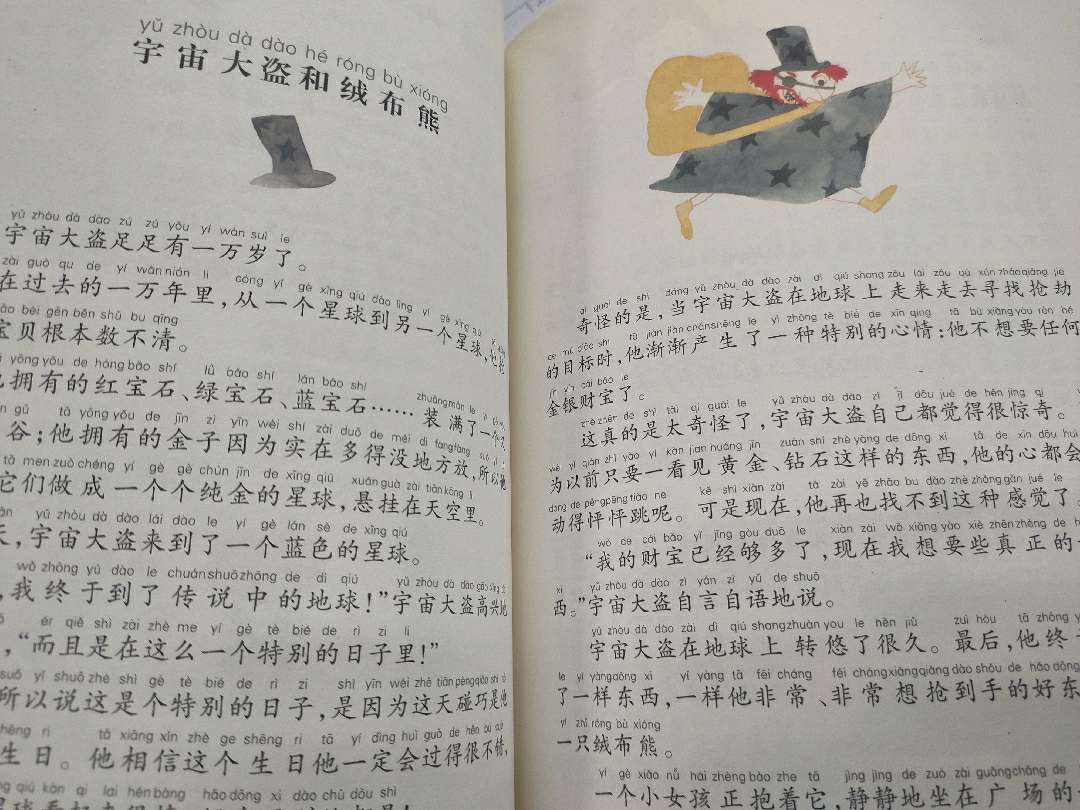 yǔ zhòu dà dào hé róng bù xióng
宇宙大盗和绒布熊
yǔ zhòu dà dào zú zú yǒu yí wàn suì le
宇宙大盗足足有一万岁了。
zài guò qù de yí wàn nián lǐ cóng yí gè xīng qiú dào lìng yí gè xīng qiú
在过去的一万年里，从一个星球到另一个星球，
bǎo bèi gēn běn shǔ bu qīng
宝贝根本数不清。
yōng yǒu de hóng bǎo shí lǜ bǎo shí lán bǎo shí zhuāng mǎn le yí
拥有的红宝石、绿宝石、蓝宝石……装满了一个
gǔ tā yōng yǒu de jīn zi yīn wèi shí zài duō de méi dì fang fàng
谷；他拥有的金子因为实在多得没地方放，所以
tā men zuò chéng yí gè gè chún jīn de xīng qiú xuán guà zài tiān kōng lǐ
它们做成一个个纯金的星球，悬挂在天空里。
yǔ zhòu dà dào lái dào le yí gè lán sè de xīng qiú
，宇宙大盗来到了一个蓝色的星球。
wǒ zhōng yú dào le chuán shuō zhōng de dì qiú yǔ zhòu dà dào gāo xìng
，我终于到了传说中的地球！”宇宙大盗高兴地
ér qiě shì zài zhè me yí gè tè bié de rì zi lǐ
，“而且是在这么一个特别的日子里！”
suǒ yǐ shuō zhè shì gè tè bié de rì zi shì yīn wèi zhè tiān pèng qiǎo shì
所以说这是个特别的日子，是因为这天碰巧是他
shēng rì tā xiāng xìn zhè ge shēng rì tā yí dìng huì guò de hěn bú cuò
生日。他相信这个生日他一定会过得很不错，
qiú kàn qǐ lai hěn bàng hǎo dōng xi dào chù dōu shì
qí guài de shì dāng yǔ zhòu dà dào zài dì qiú shang zǒu lái zǒu qù xún zhǎo qiǎng jié
奇怪的是，当宇宙大盗在地球上走来走去寻找抢劫
de mù biāo shí tā jiàn jiàn chǎn shēng le yì zhǒng tè bié de xīn qíng tā bù xiǎng yào rèn hé
的目标时，他渐渐产生了一种特别的心情：他不想要任何
jīn yín cái bǎo le
金银财宝了。
zhè zhēn de shì tài qí guài le yǔ zhòu dà dào zì jǐ dōu jué de hěn jīng qí
这真的是太奇怪了，宇宙大盗自己都觉得很惊奇。
wéi yǐ qián zhǐ yào yí kàn jiàn huáng jīn zuàn shí zhè yàng de dōng xi tā de xīn dōu huì
为以前只要一看见黄金、钻石这样的东西，他的心都会
dòng de pēng pēng tiào ne kě shì xiàn zài tā zài yě zhǎo bu dào zhè zhǒng gǎn jué le
动得怦怦跳呢。可是现在，他再也找不到这种感觉了。
wǒ de cái bǎo yǐ jīng gòu duō le xiàn zài wǒ xiǎng yào xiē zhēn zhèng de
“我的财宝已经够多了，现在我想要些真正的
xi yǔ zhòu dà dào zì yán zì yǔ de shuō
西。”宇宙大盗自言自语地说。
yǔ zhòu dà dào zài dì qiú shang zhuàn you le hěn jiǔ zuì hòu tā zhōng
宇宙大盗在地球上转悠了很久。最后，他终
le yí yàng dōng xi yí yàng tā fēi cháng fēi cháng xiǎng qiǎng dào shǒu de hǎo dōng
了一样东西，一样他非常、非常想抢到手的好东
yì zhī róng bù xióng
一只绒布熊。
yí gè xiǎo nǚ hái zhèng bào zhe tā jìng jìng de zuò zài guǎng chǎng de
一个小女孩正抱着它，静静地坐在广场的